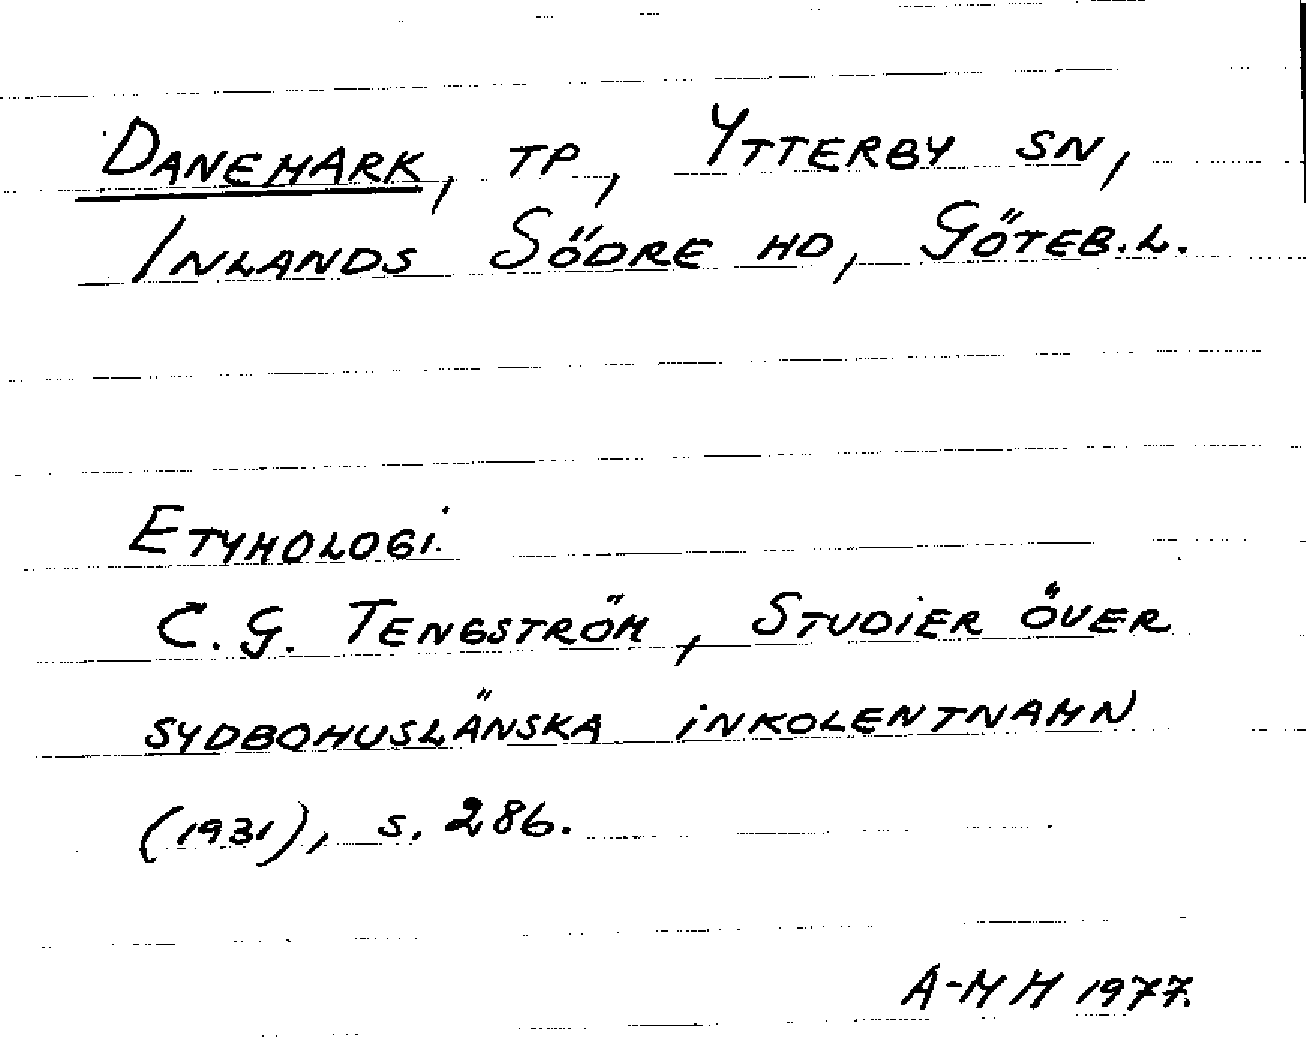 DANEMARK, TP, YTTERBY SN,
INLANDS SÖDRE HD, GÖTEB.L.
ETYMOLOGI.
C.G. TENGSTRÖM, STUDIER ÖVER
SYDBOHUSLÄNSKA INKOLENTNAMN
(1931), S. 286.
A-MH 1977.